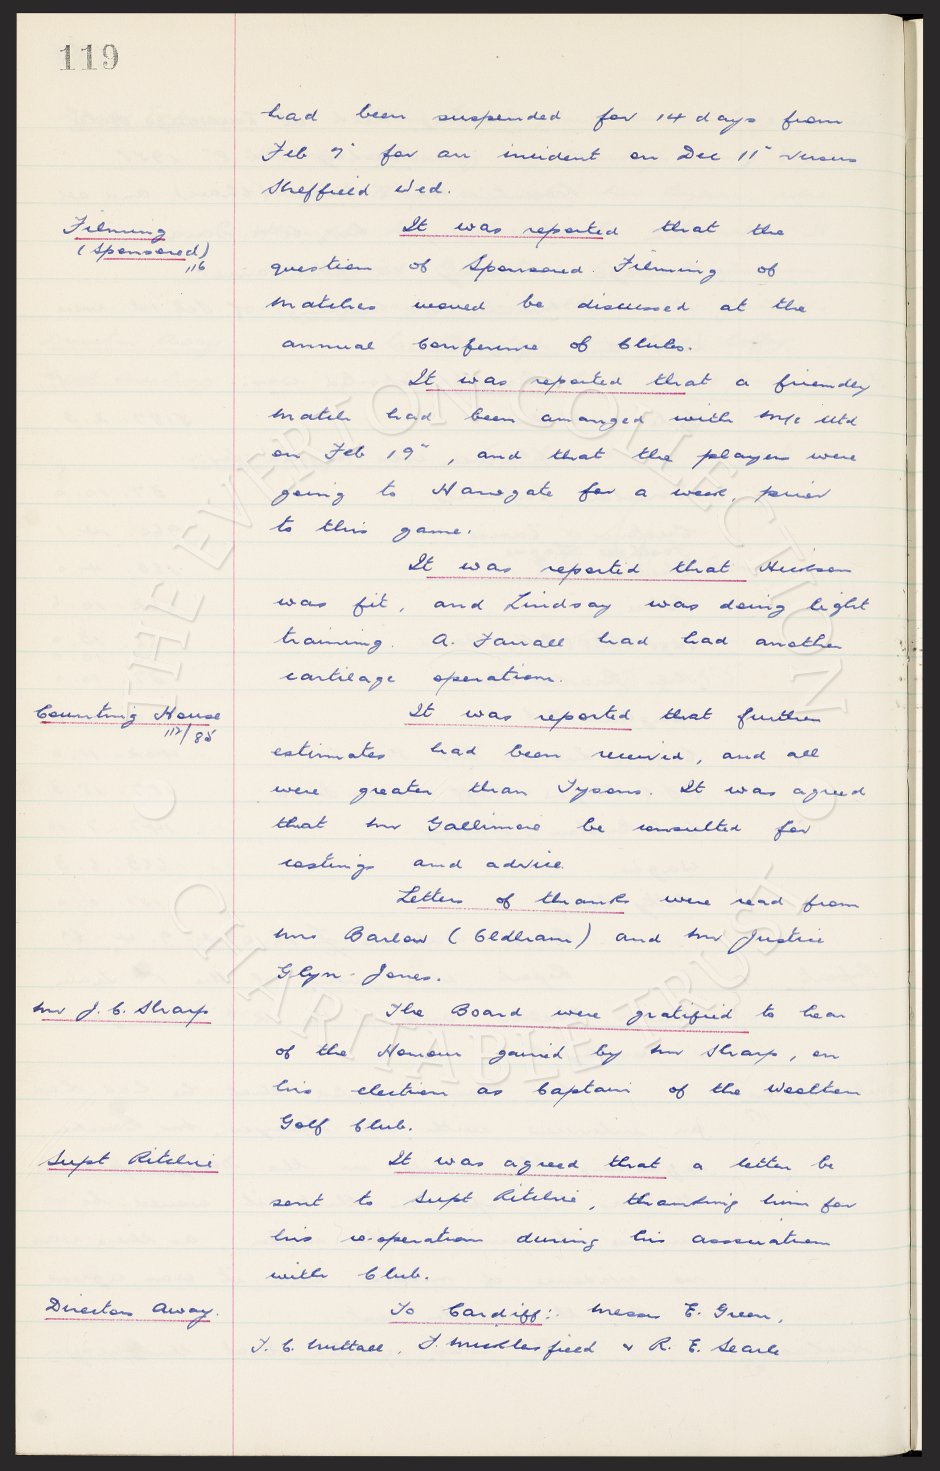 119
had been suspended for 14 days from
Feb 7" for an incident on Dec 11" versus
Sheffield Wed.
Filming
(Sponsored)
116
It was reported that the
question of Sponsored Filming of
matches would be discussed at the
annual Conference of Clubs.
It was reported that a friendly
match had been arranged with M/c Utd
on Feb 19", and that the players were
going to Harrogate for a week, prior
to this game.
It was reported that Hickson
was fit, and Lindsay was doing light
training. A. Farrall had had another
cartilage operation.
Counting House
112/85
It was reported that further
estimates had been received, and all
were greater than Tysons. It was agreed
that Mr Gallimore be consulted for
costings and advice.
Letters of thanks were read from
Mrs Barlow (Oldham) and Mr Justice
Glyn-Jones.
Mr J. C. Sharp
The Board were gratified to hear
of the Honour gained by Mr Sharp, on
his election as Captain of the Woolton
Golf Club.
Supt Ritchie
It was agreed that a letter be
sent to Supt Ritchie, thanking him for
his co-operation during his association
with Club.
Directors Away.
To Cardiff:. Messrs E. Green,
T. C. Nuttall, F. Micklesfield & R. E. Searle
THE EVERTON COLLECTION
CHARITABLE TRUST